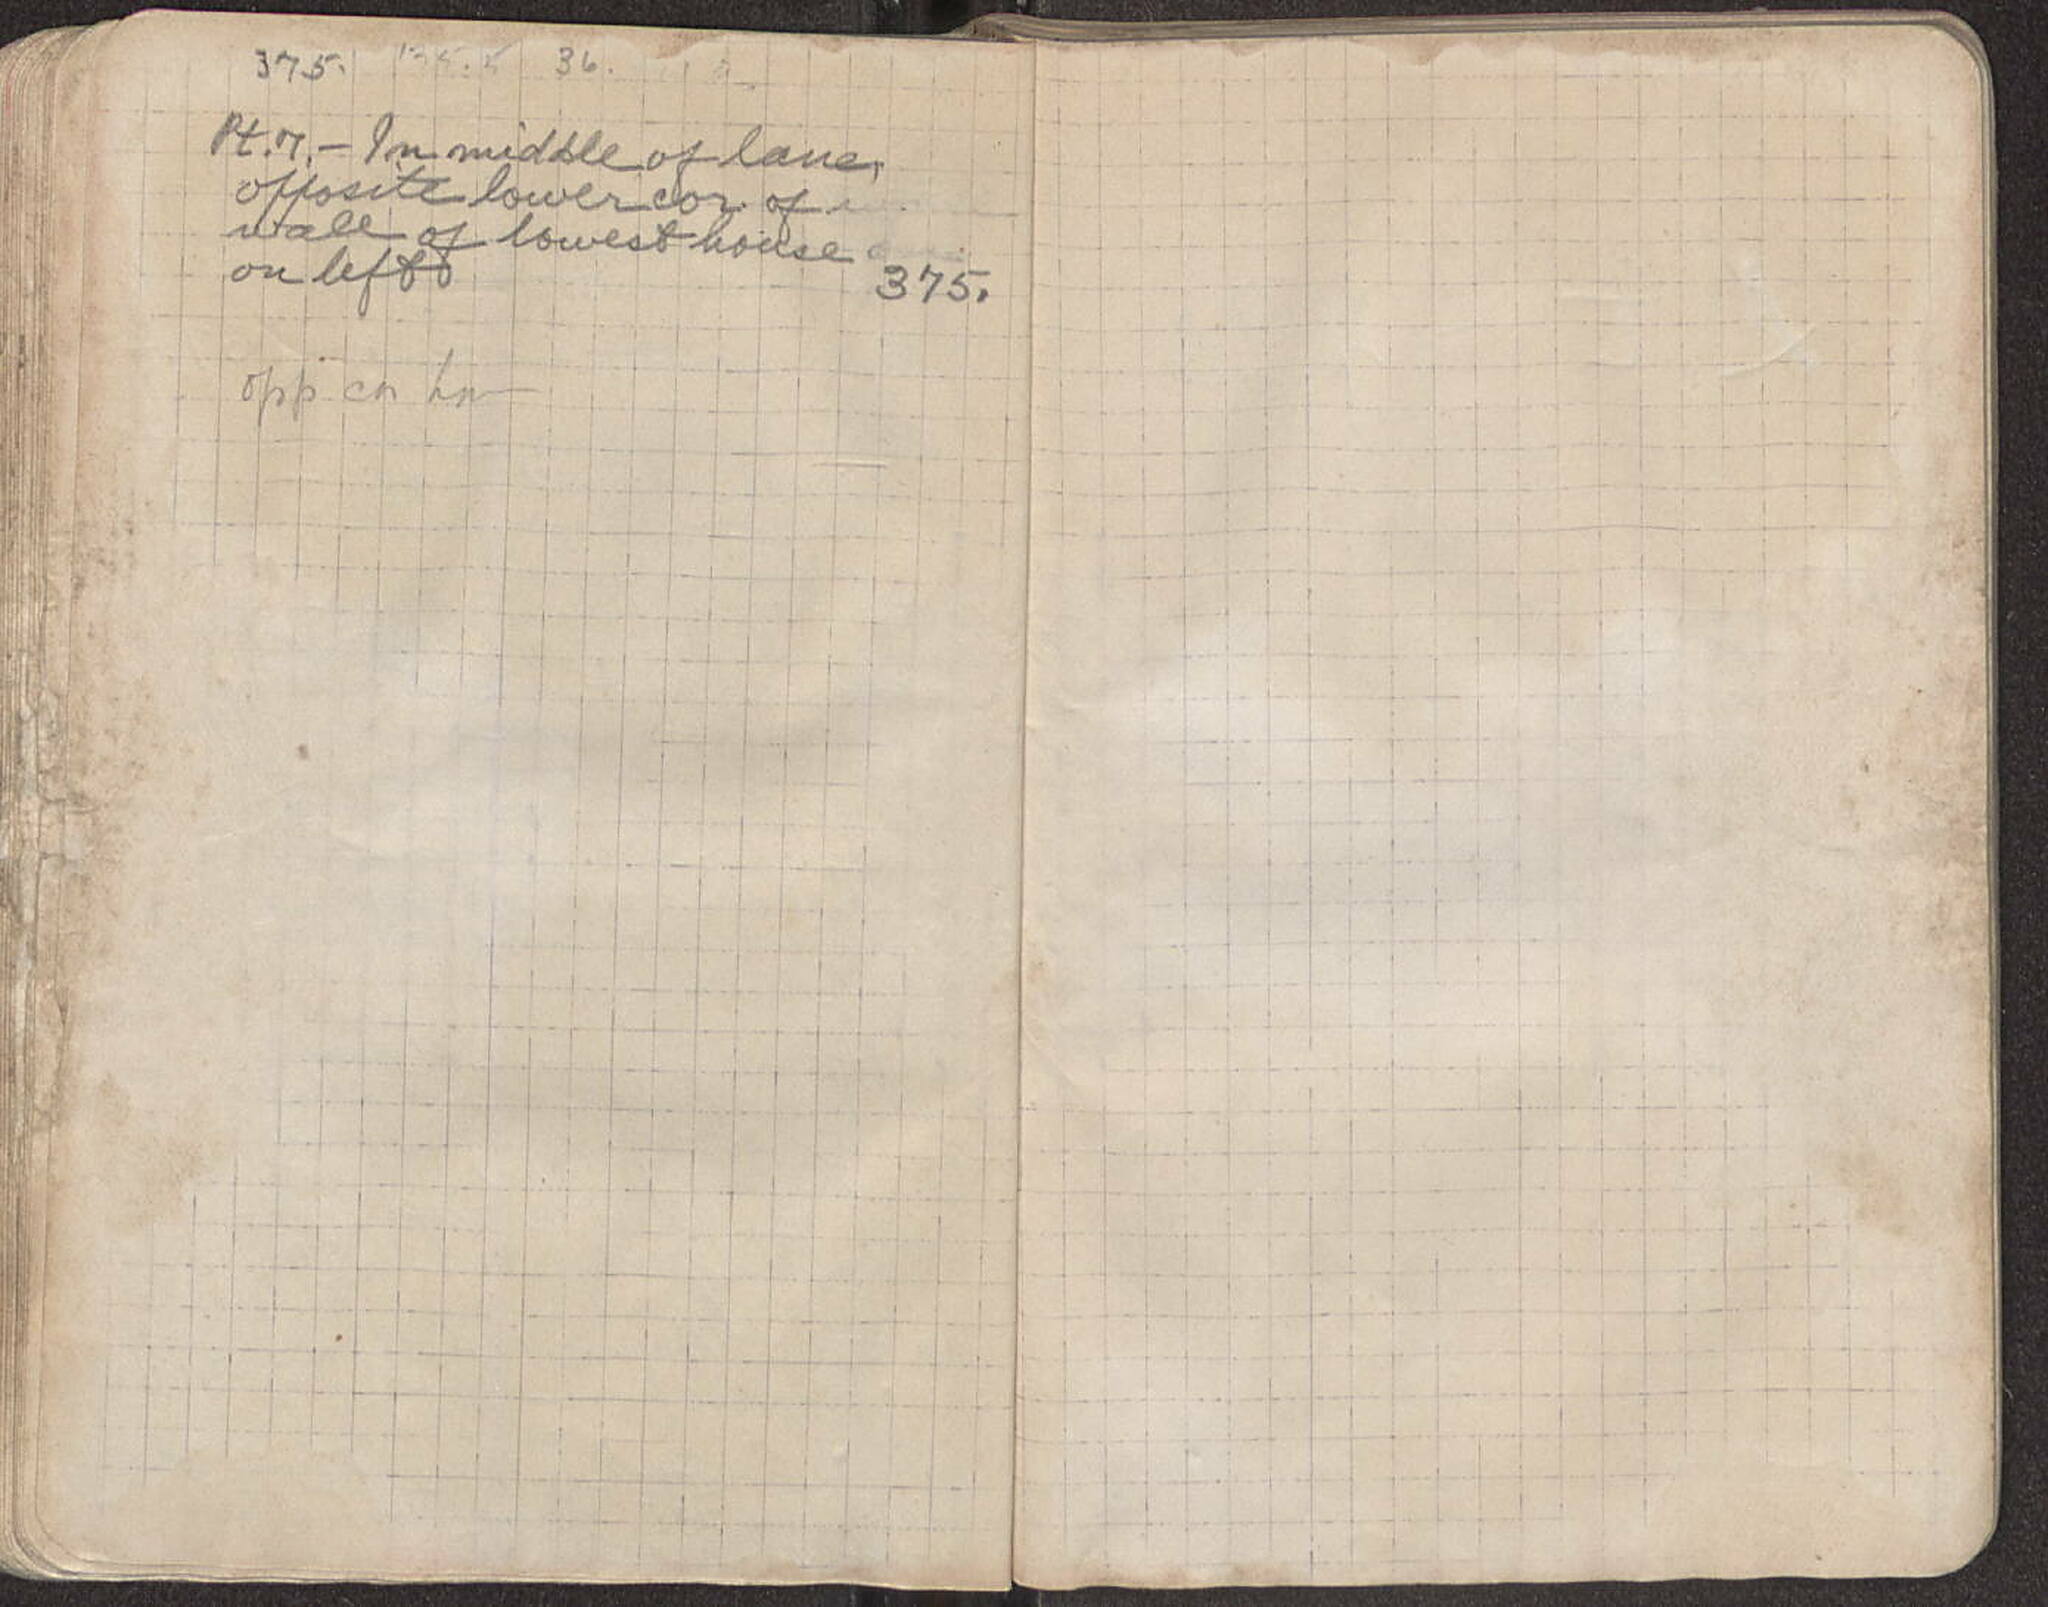 375. 36.
Pt. 7. - In middle of lane,
opposite lower cor. of
wall of lowest house
on left. 375.
opp cor